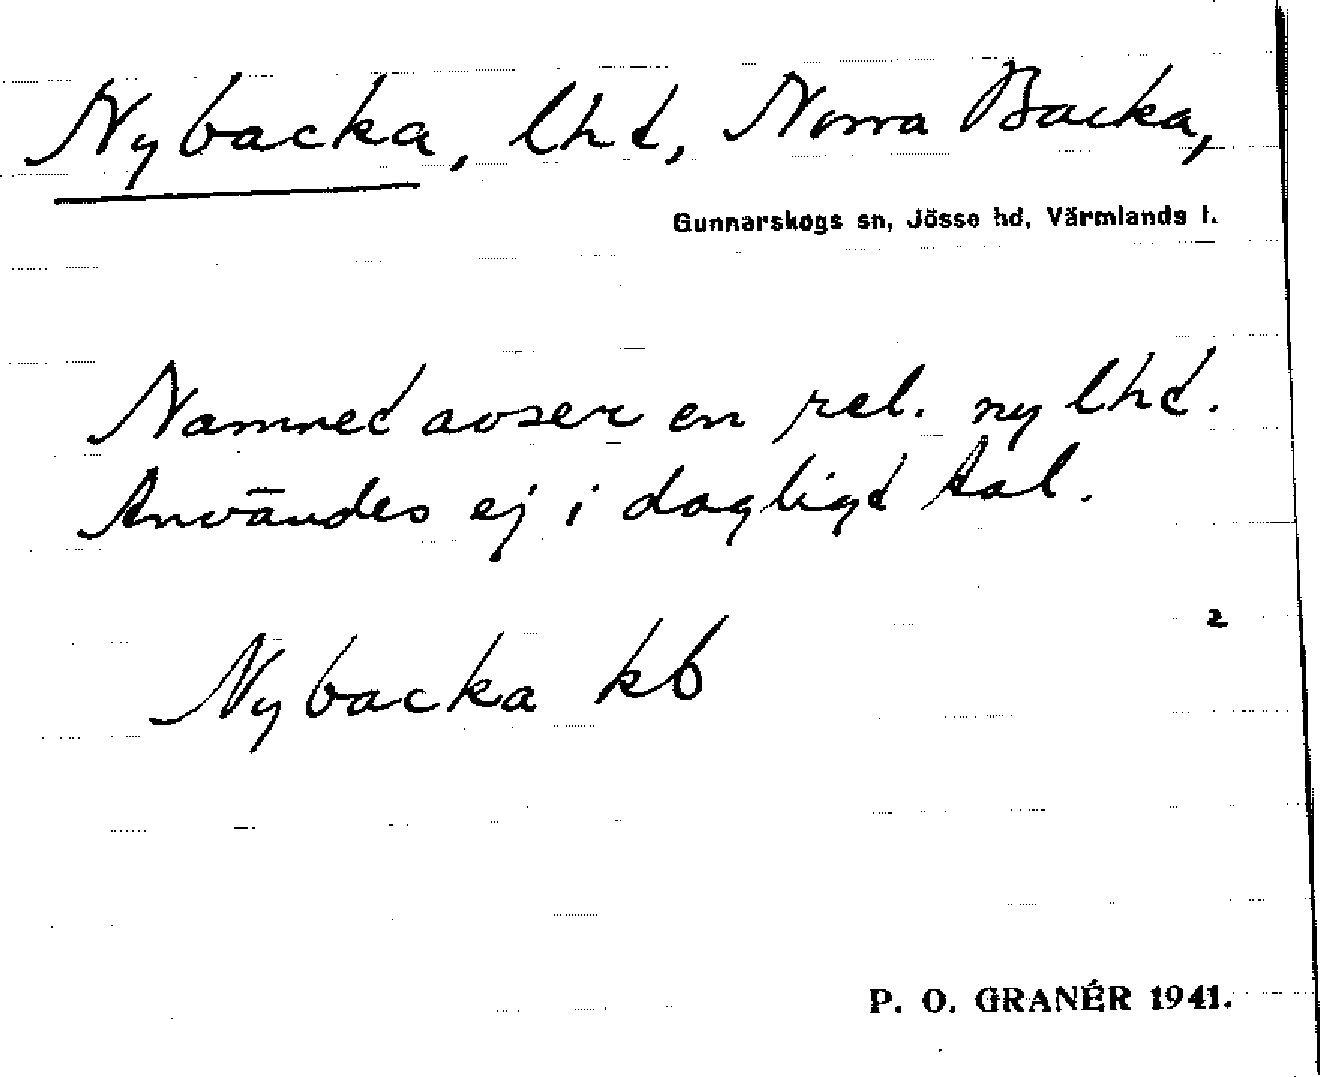 Nybacka, lht, Norra Backa,
Gunnarskogs sn, Jösse hd, Värmlands l.
Namnet avser en rel. ny lht.
Användes ej i dagligt tal.
2
Nybacka kb
P. O. GRANÉR 1941.